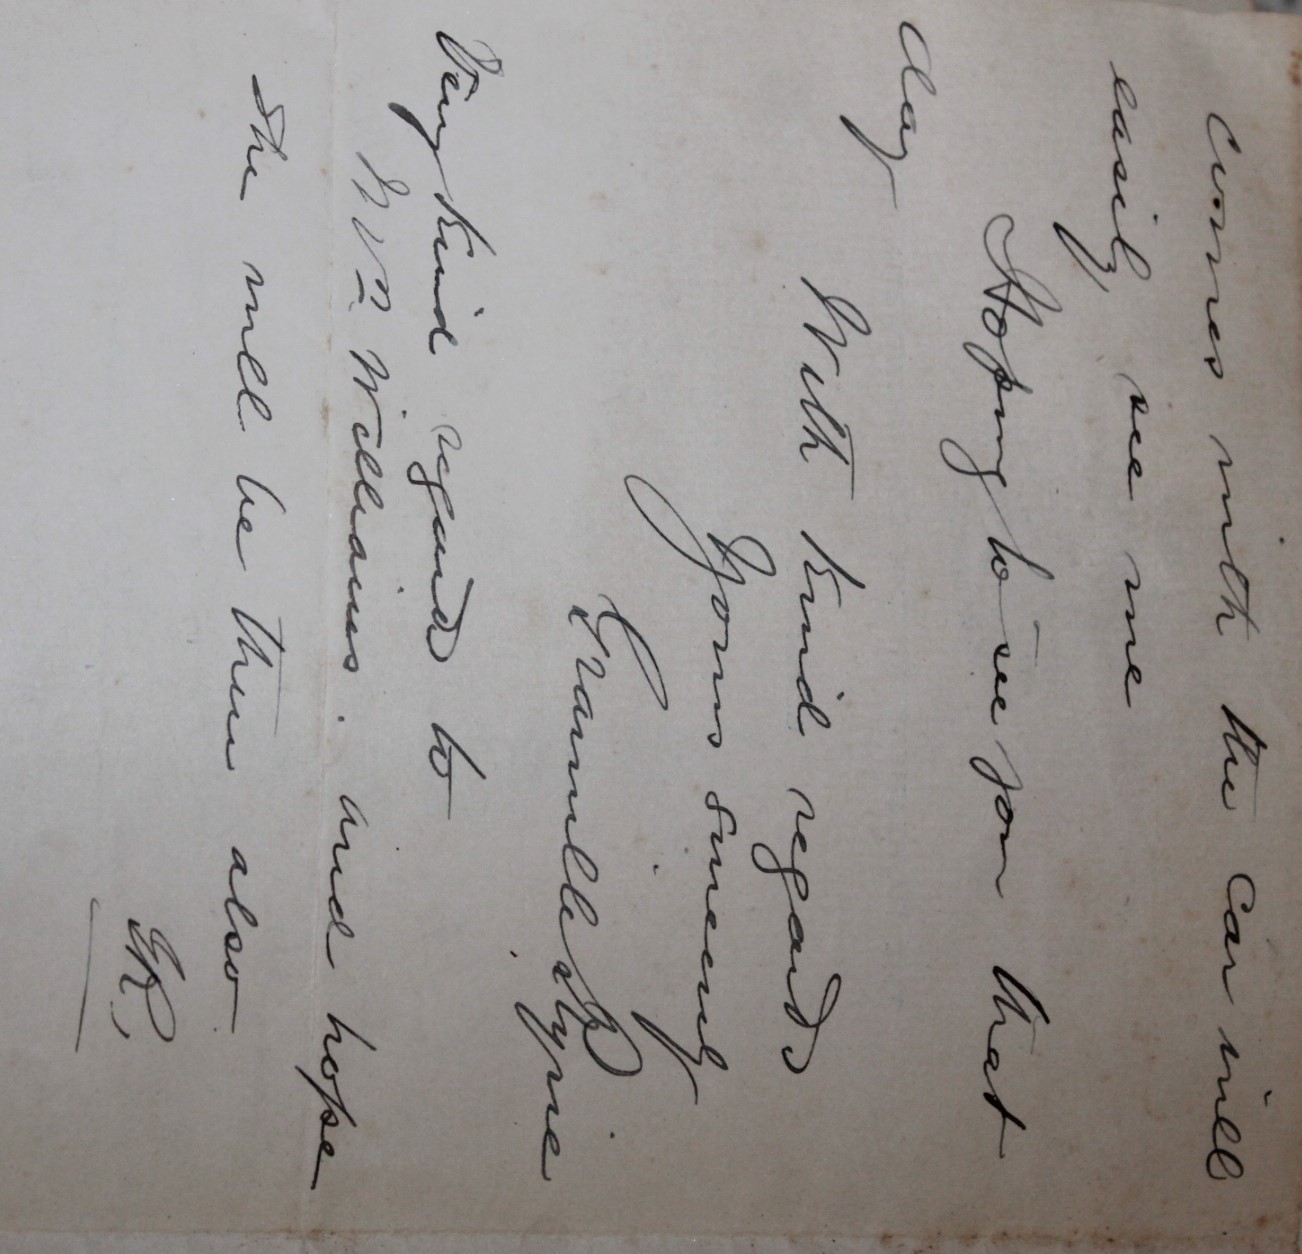 comes with the car will
easily see me
Hoping to see you that
day
With kind regards
Yours sincerely
Granville Ryrie
Very kind regards to
Mrs Williams. and hope
she will be there also
GR,